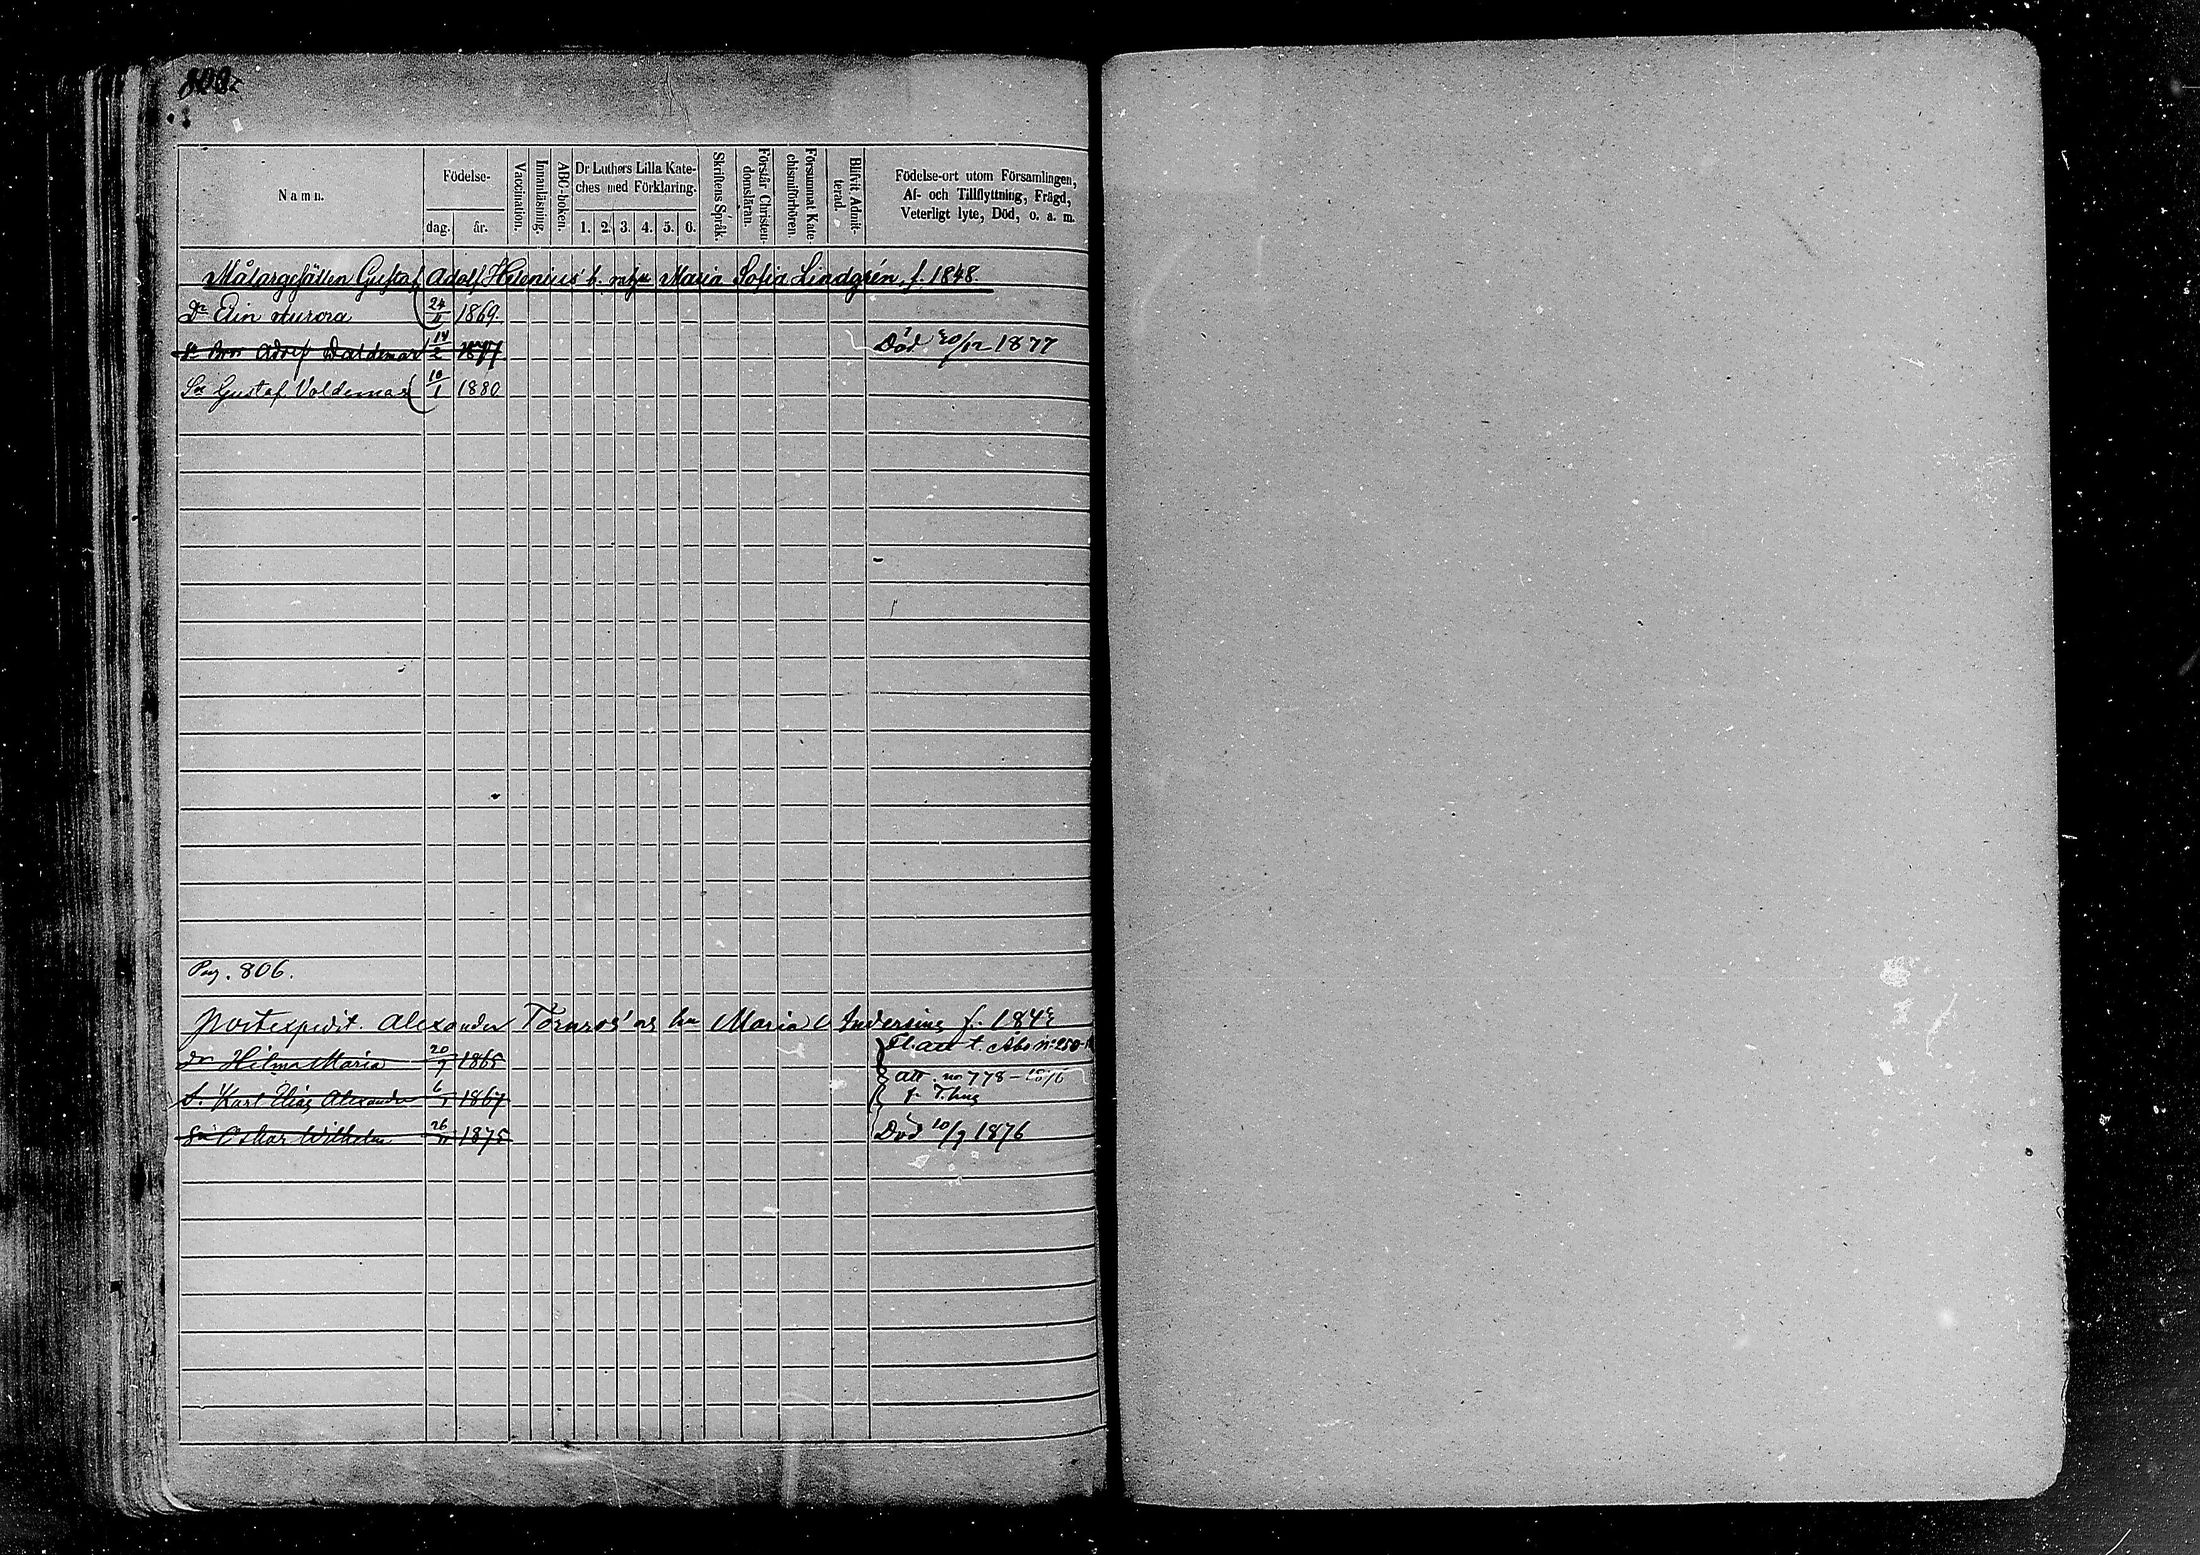 Namn.
Födelse-
dag.
år.
Vaccination.
Innanläsning.
ABC-boken.
Dr Luthers Lilla Kate-
ches med Förklaring.
1. 2. 3. 4. 5. 6.
Skriftens Språk.
Förstår Christen-
domsläran.
Försummat Kate-
chismiförhören.
Blifvit Admit-
terad.
Födelse-ort utom Församlingen,
Af- och Tillflyttning, Frägd,
Veterligt lyte, Död, o. a. m.
Målargesällen Gustaf Adolf Helenius' h. Maria Sofia Lindgrén, f. 1848
Dr Elin Aurora 1869.
Adolf Valdemar 14/2 1877 Död 20/12 1877
Sn Gustaf Voldemar 10/1 1880
Pag. 806.
Postexpedit. Alexander Törnros' Maria
dr Hilma Maria 20/9 1865 t. Åbo No 250
att. no 778 - 1876
s. Karl Elias Alexander 6/1 1867
Sn Oskar Wilhelm 26/11 1875 Död 20/9 1876